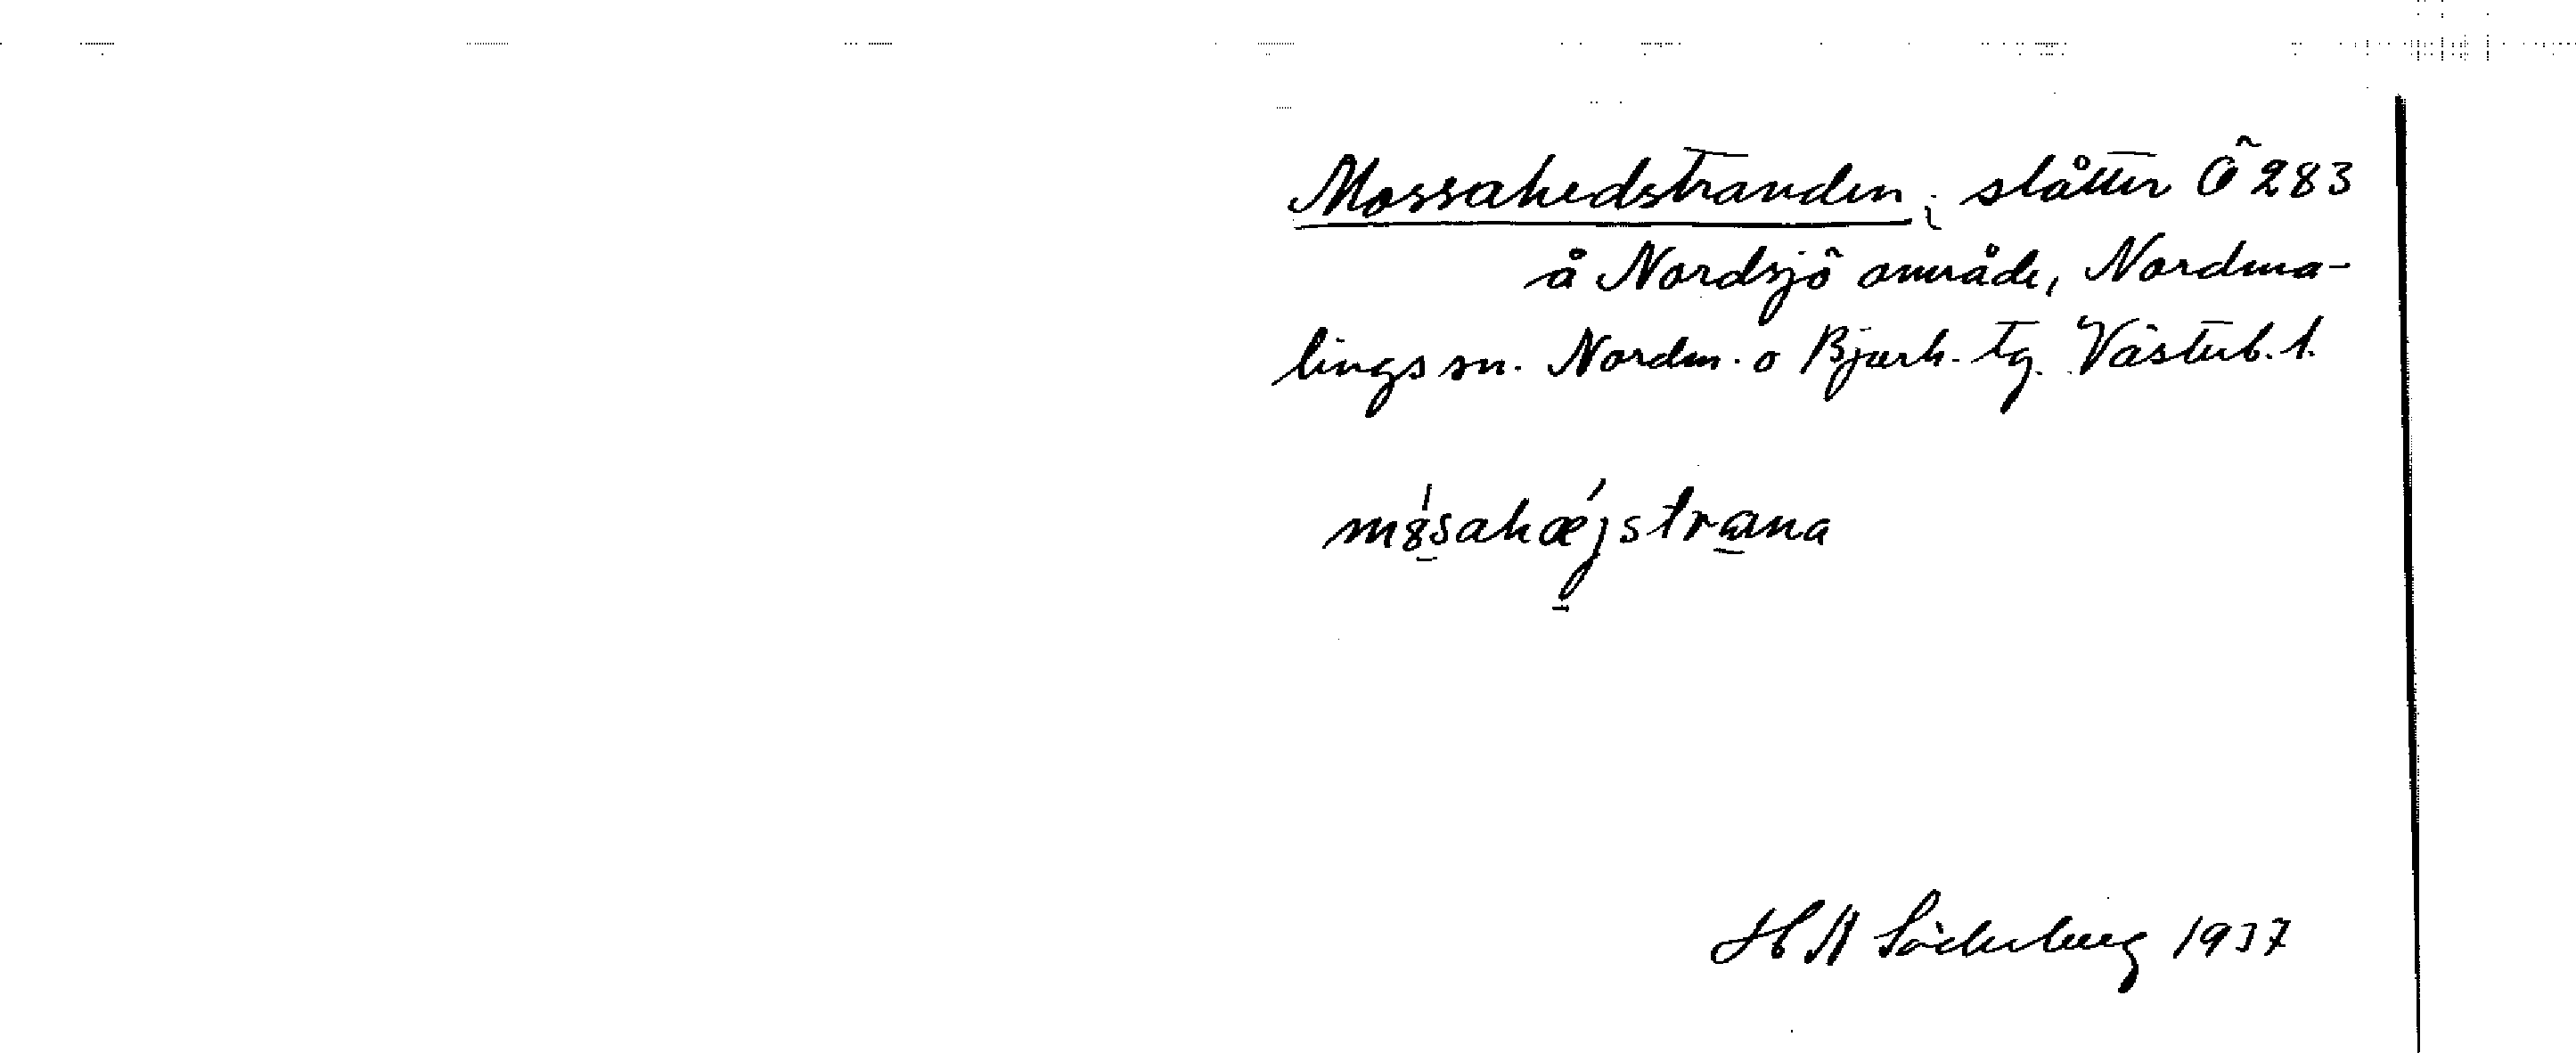 Mossahedstranden; slåtter Ö 283
å Nordsjö område, Nordma-
lings sn. Nordm. o Bjurh. tg. Västerb. l.
mȣ́sahǽjstrana
H A Söderberg 1937